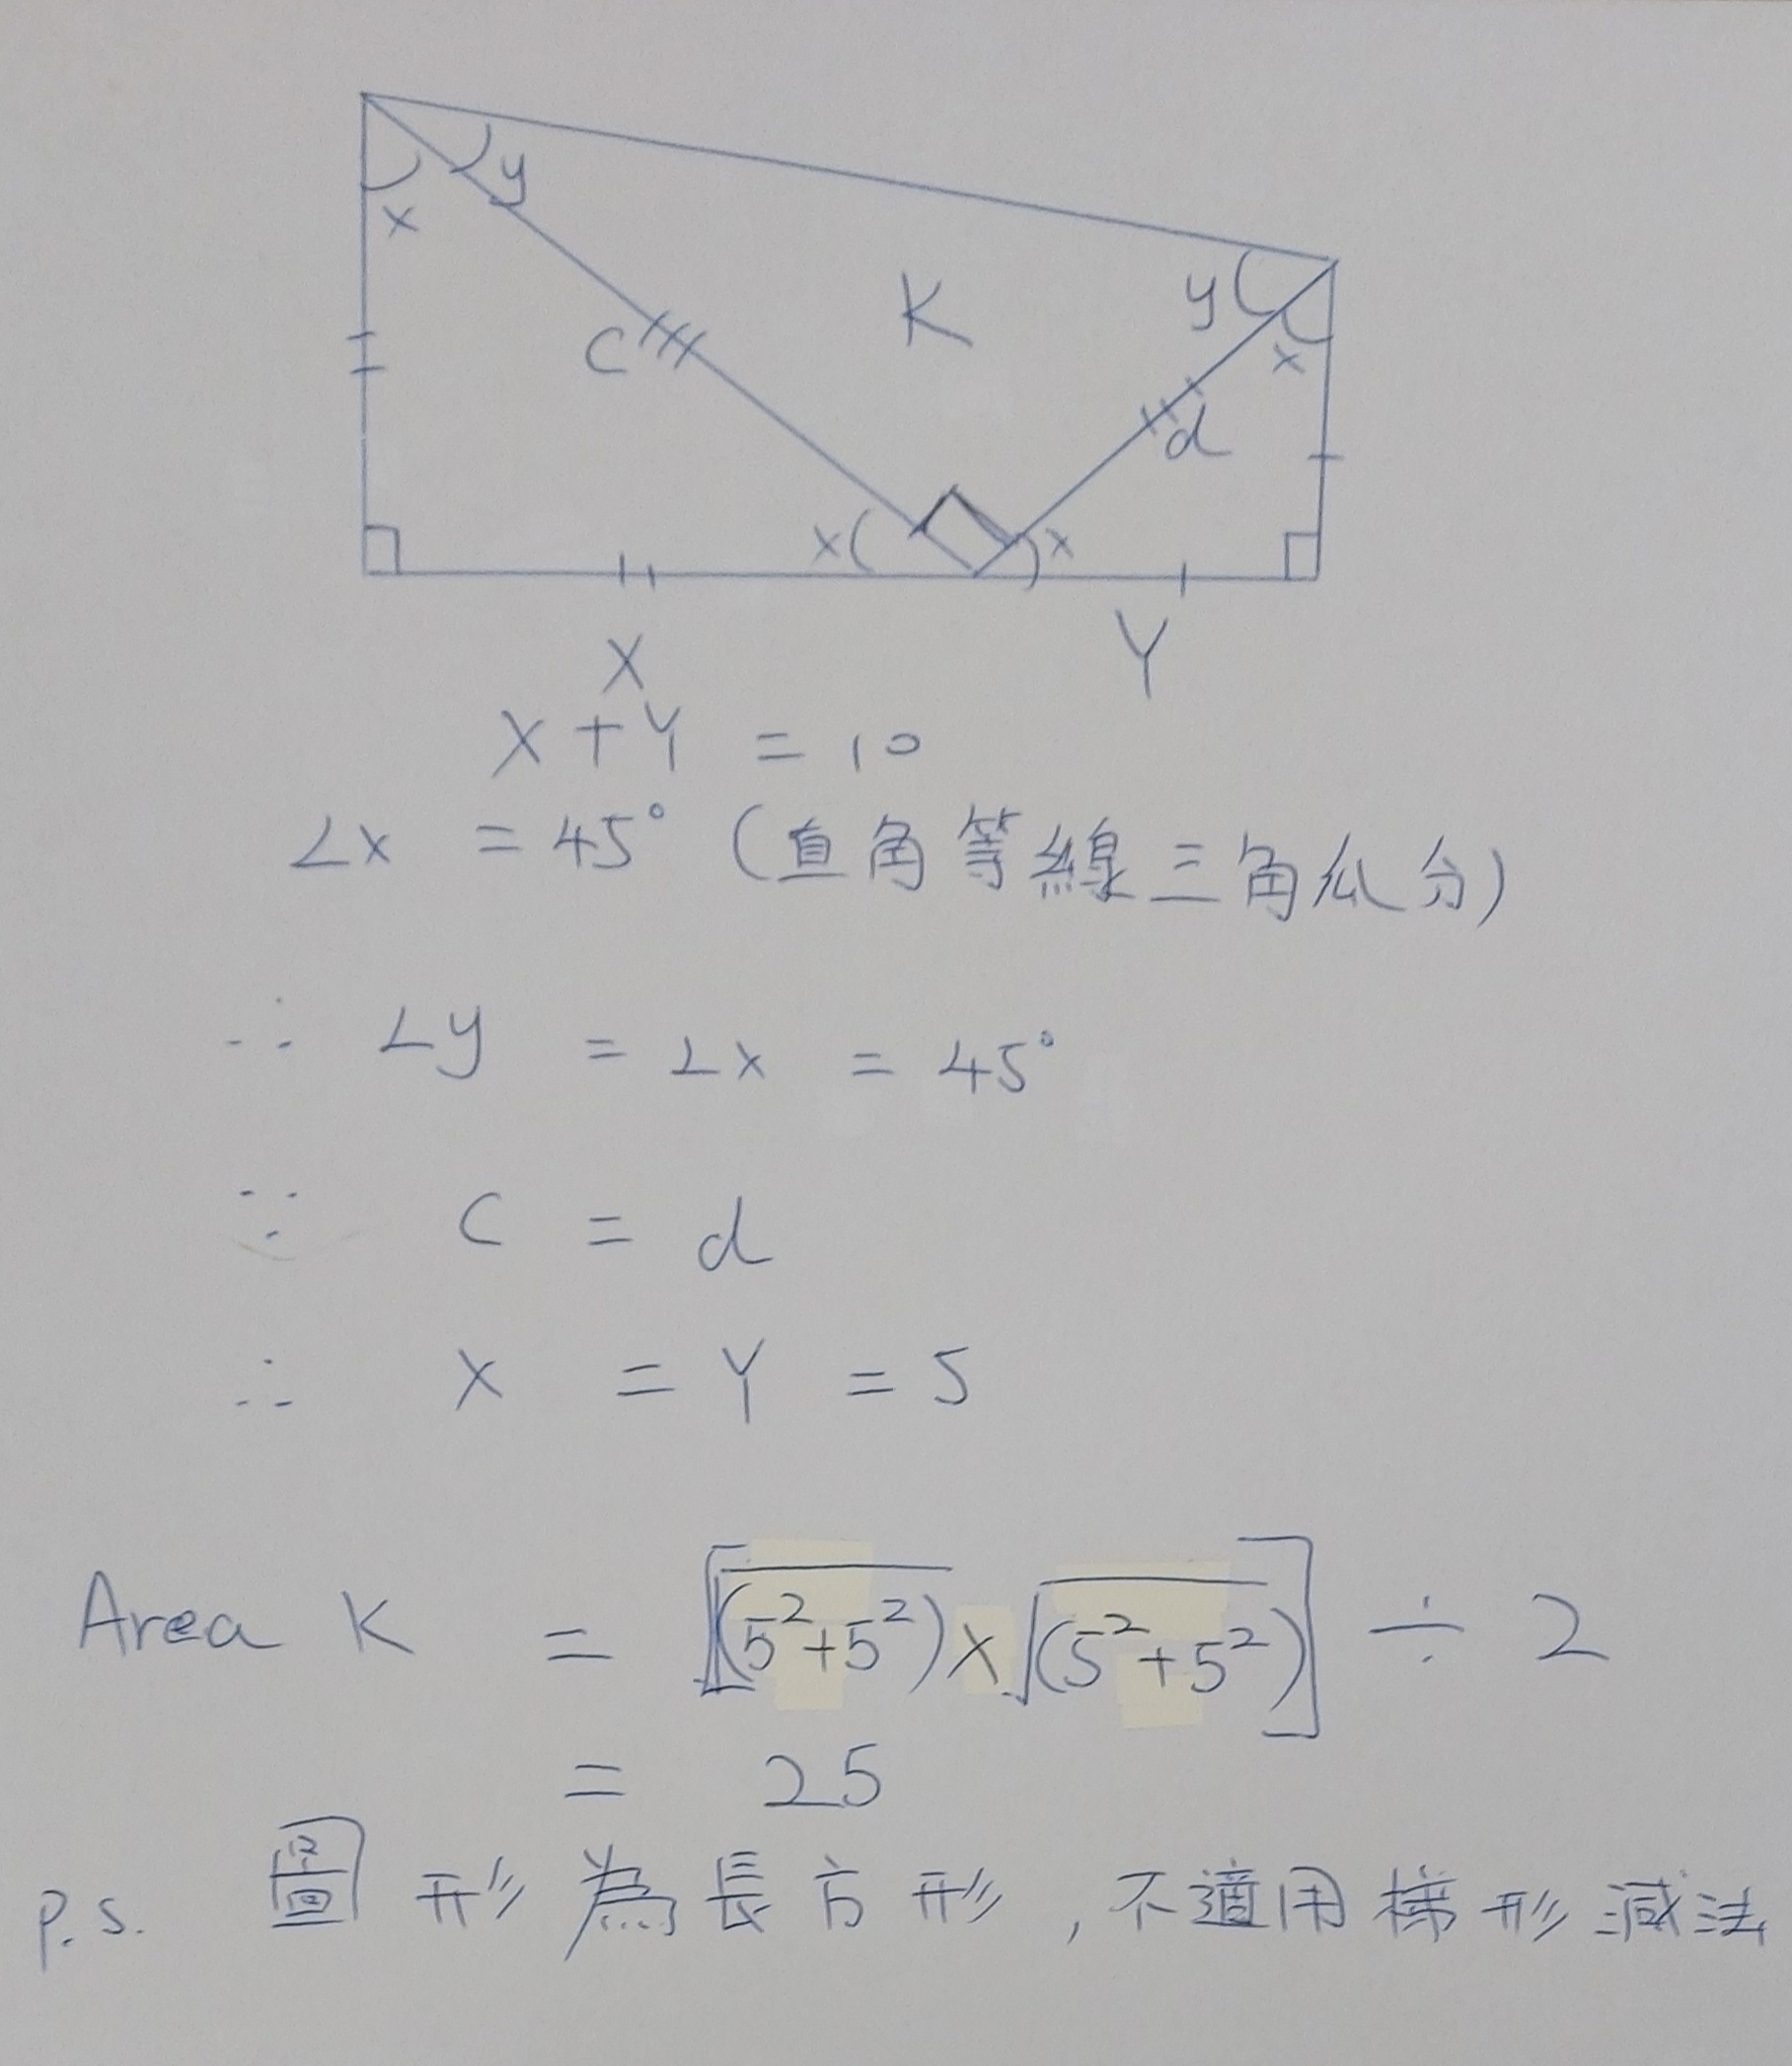 y
x
c
K
y
x
d
x
x
X
Y
X + Y = 10
∠x = 45° (直角等線三角瓜分)
∴ ∠y = ∠x = 45°
∵ c = d
∴ X = Y = 5
Area K = [√(5²+5²) × √(5²+5²)] ÷ 2
= 25
p.s. 圖形為長方形,不適用梯形減法